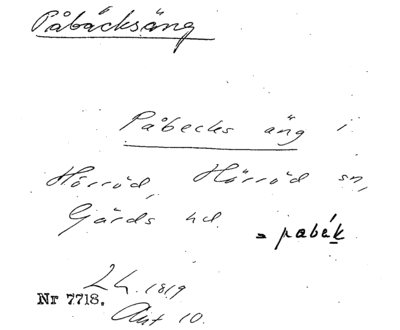 Påbäcksäng
Påbecks äng i
Hörröd, Hörröd sn,
Gärds hd.
= pabék
Lh. 1819
Nr 7718.
Akt 10.